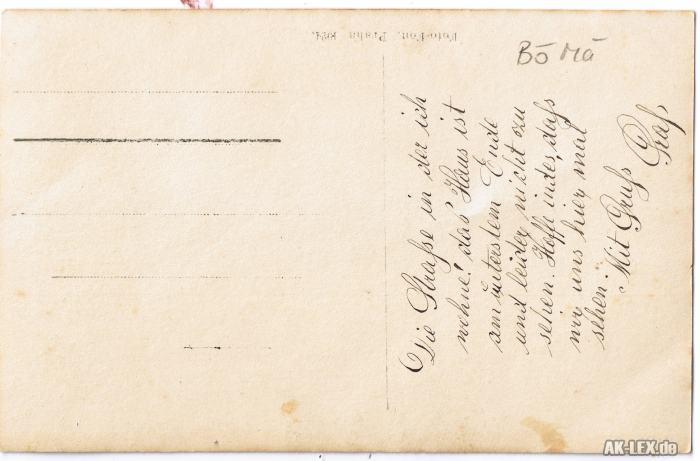 Foto-Fon, Praha 8024.
Bö Mä
Die Straße in der ich
wohne! das Haus ist
am unterstem Ende
und leider nicht zu
sehen. Hoffe indes, dass
wir uns hier mal
sehen. Mit Gruß Graf.
AK-LEX.de